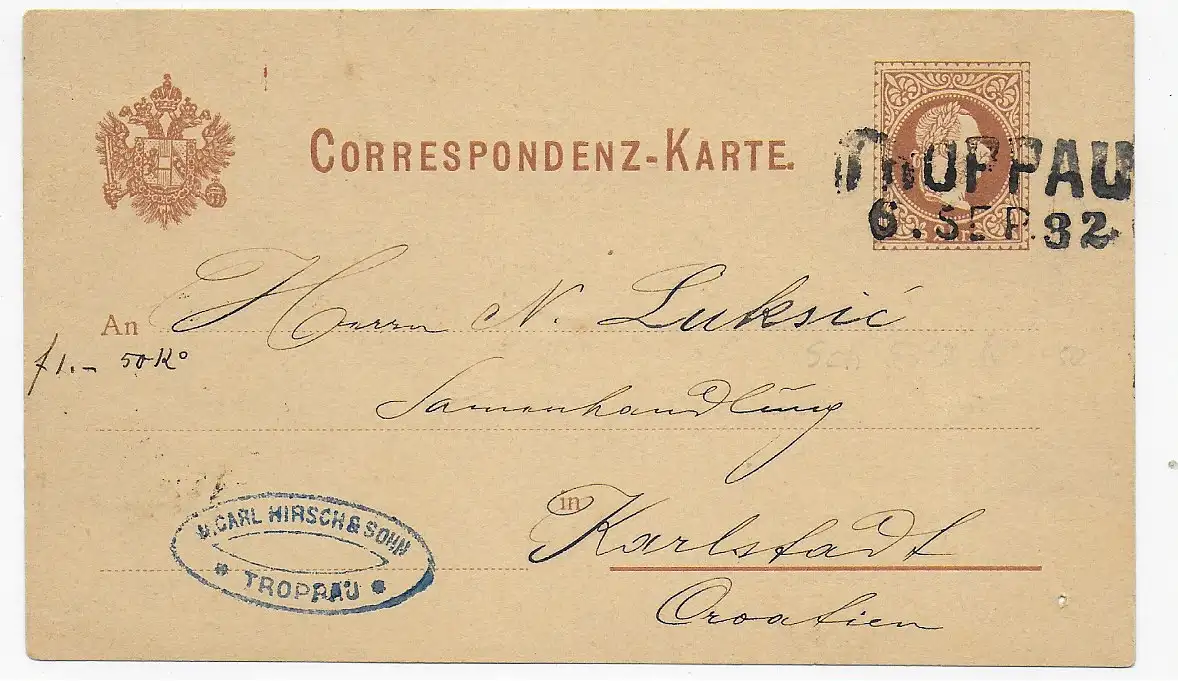 CORRESPONDENZ-KARTE.
TROPPAU
6. SEP. 82.
An Herrn N. Luksić
f 1.- 50 Ko
Samenhandlung
in Karlstadt
Croatien
M. CARL HIRSCH & SOHN
* TROPPAU *